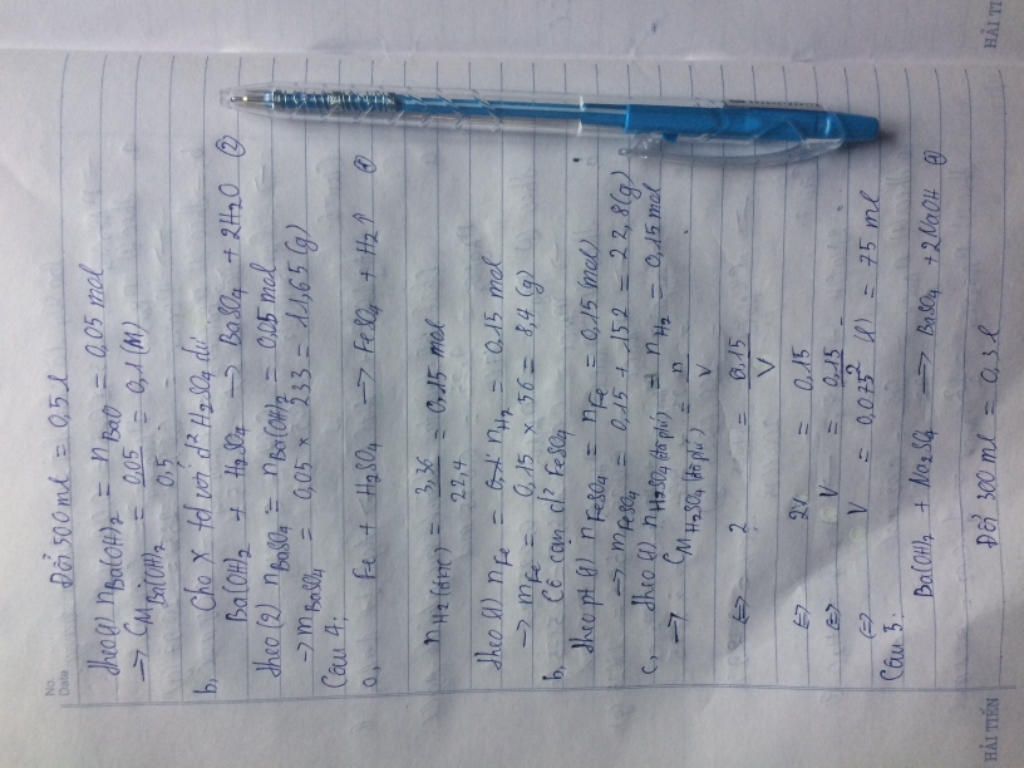 No.
Date
Đổi 500 ml = 0,5 l
theo (1) nBa(OH)2 = nBaO = 0,05 mol
→ CM Ba(OH)2 = 0,05 / 0,5 = 0,1 (M)
b, Cho X td với d² H2SO4 dư
Ba(OH)2 + H2SO4 → BaSO4 + 2H2O (2)
theo (2) nBaSO4 = nBa(OH)2 = 0,05 mol
→ mBaSO4 = 0,05 × 233 = 11,65 (g)
Câu 4:
a, Fe + H2SO4 → FeSO4 + H2↑ (1)
nH2 (đktc) = 3,36 / 22,4 = 0,15 mol
theo (1) nFe = nH2 = 0,15 mol
→ mFe = 0,15 × 56 = 8,4 (g)
b, Cô cạn d² FeSO4
theo pt (1) nFeSO4 = nFe = 0,15 (mol)
→ mFeSO4 = 0,15 + 152 = 22,8 (g)
c, theo (1) nH2SO4 (đã pứ) = nH2 = 0,15 mol
→ CM H2SO4 (đã pứ) = n / V
⇔ 2 = 0,15 / V
⇔ 2V = 0,15
⇔ V = 0,15 / 2
⇔ V = 0,075 (l) = 75 ml
Câu 3:
Ba(OH)2 + Na2SO4 → BaSO4 + 2NaOH (1)
Đổi 300 ml = 0,3 l
HẢI TIẾN
HẢI TI